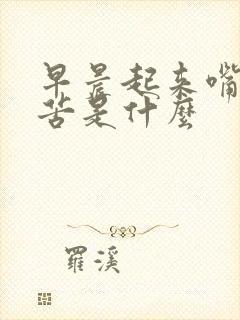 早晨起来嘴
苦是什麼
羅溪